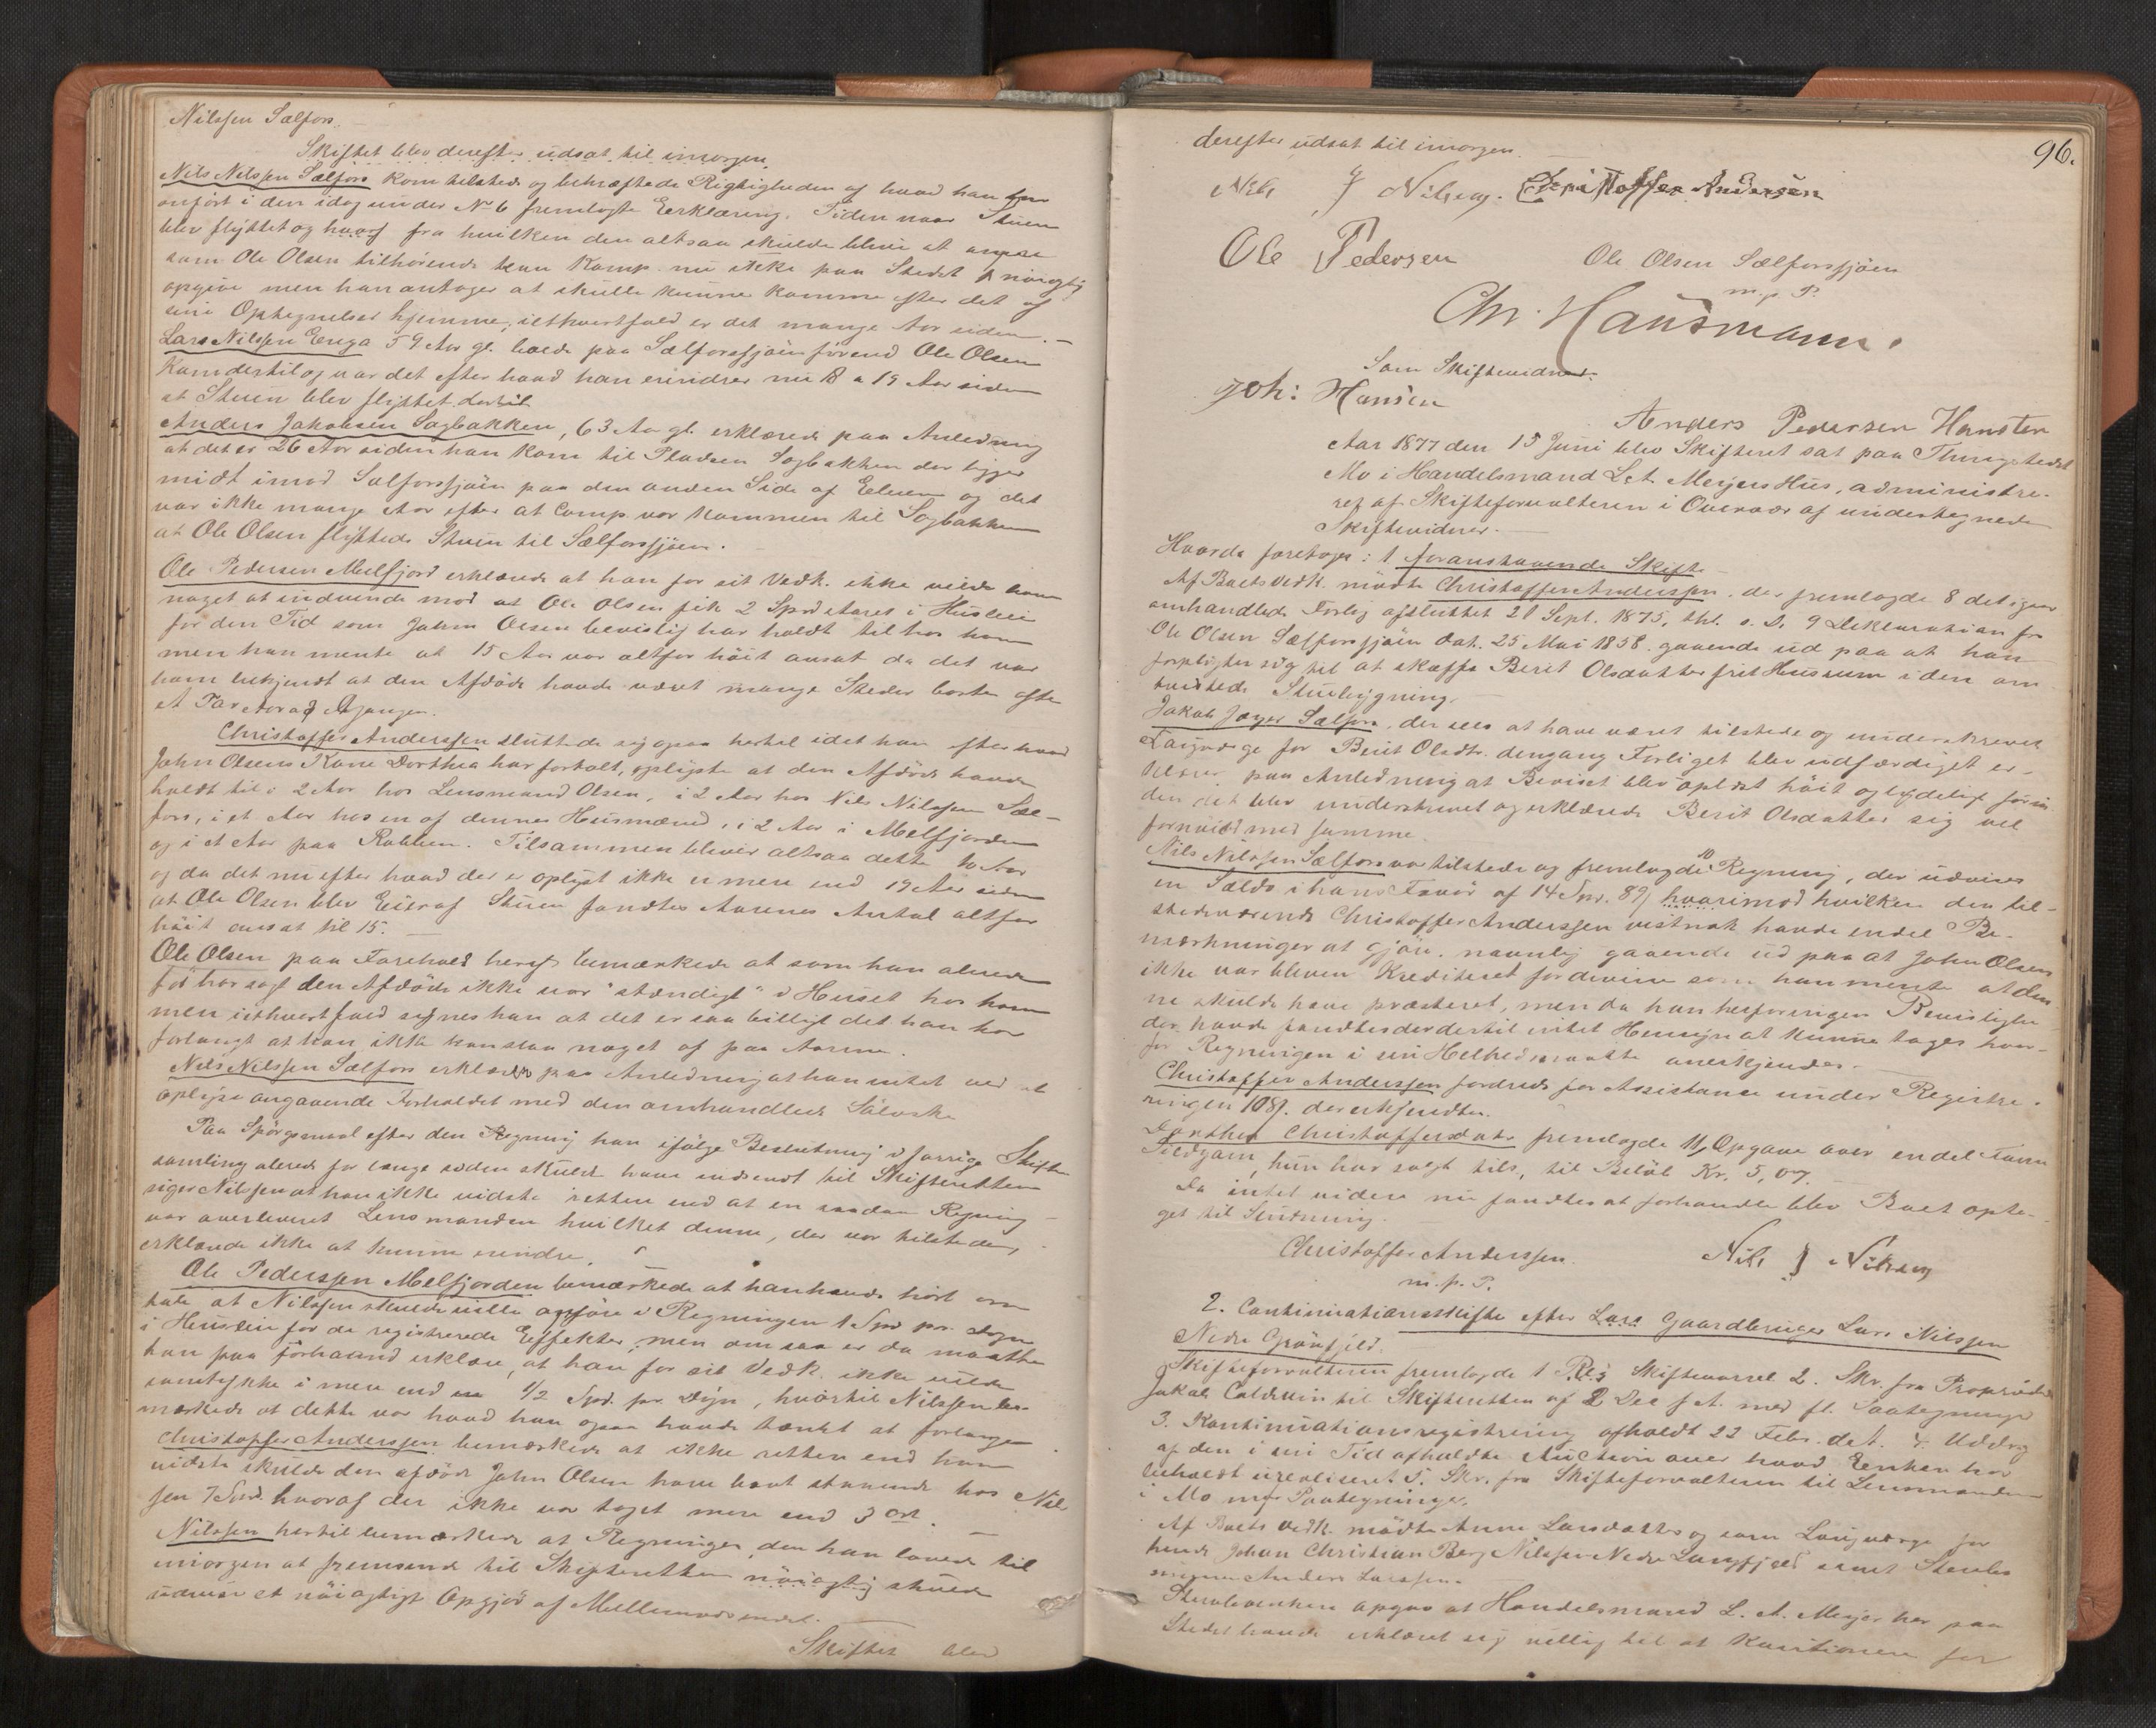 Nilssen Sælfors.
Skiftet blev derefter udsat til imorgen
Nils Nilssen Sælfors kom tilstede og bekræftede Rigtigheden af hvad han har
anført i den idag under No 6 fremlagte Erklæring. Tiden naar Stuen
blev flyttet og hvorf fra hvilken den altsaa skulde blive at ansee
som Ole Olsen tilhørende kan Komp. nu ikke paa Stedet nøiagtig
opgive men han antager at skulle kunne komme efter det af
sine Optegnelser hjemme, iethvertfald er det mange Aar siden. –
Lars Nilssen Enga 59 Aar gl. boede paa Sælforssjøen førend Ole Olsen
kom dertil og var det efter hvad han erindrer nu 18 a 19 Aar siden
at Stuen blev flyttet dertil
Anders Jakobsen Sagbakken, 63 Aar gl. erklærede paa Anledning
at det er 26 Aar siden han kom til Pladsen Sagbakken der ligger
midt imod Sælforssjøen paa den anden Side af Elven og det
var ikke mange Aar efter at Comp. var kommen til Sagbakken
at Ole Olsen flyttede Stuen til Sælforssjøen.
Ole Pedersen Melfjord erklærede at han for sit Vedk. ikke vilde have
noget at indvende mod at Ole Olsen fik 2 Spd Aaret i Husleie
for den Tid som John Olsen bevislig har holdt til hos ham
men han mente at 15 Aar var altfor høit ansat da det var
ham bekjendt at den Afdøde havde været mange Steder borte ofte
et Par Aar ad Gangen.
Christoffer Anderssen sluttede sig ogsaa hertil idet han efter hvad
John Olsens Kone Dorthea har fortalt, oplyste at den Afdøde havde
holdt til i 2 Aar hos Lensmand Olsen, i 2 Aar hos Nils Nilssen Sæl-
fors, i et Aar hos en af dennes Husmænd, i 2 Aar i Melfjorden
og i et Aar paa Rabben. Tilsammen bliver altsaa dette Aar
og da det nu efter hvad der er oplyst ikke er mere end 19 Aar siden
at Ole Olsen blev Eier af Stuen fandtes Aarenes Antal altfor
høit ansat til 15. –
Ole Olsen paa Forehold heraf bemærkede at som han allerede
før har sagt den Afdøde ikke var "stændigt" i Huset hos ham
men iethvertfald synes han at det er saa billigt det han har
forlangt at han ikke kan slaa noget af paa Aarene.
Nils Nilssen Sælfors erklærede paa Anledning at han intet ved at
oplyse angaaende Forholdet med den omhandlede Sølvske
Paa Spørgsmaal efter den Regning han ifølge Beslutning i forrige Skifte-
samling allerede for længe siden skulde have indsendt til Skifteretten
siger Nilssen at han ikke vidste rettere end at en saadan Regning
var overleveret Lensmanden hvilket denne, der var tilstede,
erklærede ikke at kunne erindre.
Ole Pederssen Melfjorden bemærkede at han havde hørt om
tale at Nilssen skulde ville anføre i Regningen 1 Spd pr. Døgn
i Husleie for de registrerede Effekter, men om saa er da maatte
han paa forhaand erklære, at han for sit Vedk. ikke vilde
samtykke i mere end 1/2 Spd. pr. Døgn, hvortil Nilssen be-
mærkede at dette var hvad han ogsaa havde tænkt at forlange.
Christoffer Anderssen bemærkede at ikke retten end han
vidste skulde den afdøde John Olsen have havt staaende hos Nils-
sen 7 Spd. hvoraf der ikke var taget mere end 3 ort. –
Nilssen hertil bemærkede at Regningen, den han lovede til
imorgen at fremsende til Skifteretten nøiagtig skulde
udvise et nøiagtigt Opgjør af Mellemværendet.
Skiftet blev
96.
derefter udsat til imorgen. –
Nils J Nilssen. Christoffer Andersen
Ole Pedersen Ole Olsen Sælforssjøen
m. p. P.
Chr. Hausmann.
Som Skiftevidner:
Joh: Hansen
Anders Pedersen Hanster
Aar 1877 den 15 Juni blev Skifteret sat paa Thingstedet
Mo i Handelsmand L. A. Meyers Hus, administre-
ret af Skifteforvalteren i Overvær af undertegnede
Skiftevidner. –
Hvorda foretoges: 1 foranstaaende Skifte
Af Boets Vedk. mødte Christoffer Anderssen, der fremlagde 8 det igaar
omhandlede Forlig afsluttet 21 Sept. 1875, thl. s. D. 9 Deklaration fra
Ole Olsen Sælforssjøen dat. 25 Mai 1858 gaaende ud paa at han
forpligter sig til at skaffe Berit Olsdatter frit Husrum i den om
tvistede Stuebygning.
Jakob Jager Sælfors, der sees at have været tilstede og underskrevet
Laugværge for Berit Olsdtr. dengang Forliget blev udfærdiget er-
klærer paa Anledning at Beviset blev oplæst høit og tydeligt førin-
den det blev underskrevet og erklærede Berit Olsdatter sig vel
fornøiet med samme.
Nils Nilssen Sælfors var tilstede og fremlagde 10 Regning, der udviser
en Saldo i hans Favør af 14 Spd. 89 hvorimod hvilken den til-
stedeværende Christoffer Anderssen vistnok havde endel Be-
mærkninger at gjøre, navnlig gaaende ud paa at John Olsen
ikke var bleven krediteret for diverse som han mente at den-
ne skulde have præsteret, men da han herforingen Bevisligheder
havde fandtes der dertil intet Hensyn at kunne tages hvor-
for Regningen i sin Helhed maatte anerkjendes. –
Christoffer Anderssen fordrede for Assistance under Registre-
ringen 108. der erkjendtes.
Dorthea Christoffersdatter fremlagde 11 Opgave over endel Favne
Sildgarn, hun har solgt tils, til Beløb Kr. 5,07. –
Da intet videre nu fandtes at forhandle blev Boet opta-
get til Slutning.
Christoffer Anderssen. Nils J Nilssen
m. p. P.
2. Continuationsskifte efter Lars Gaardbruger Lars Nilssen
Nedre Grønfjeld.
Skifteforvalteren fremlagde 1 Rlz Skiftevarsel 2. Skr. fra Proprietær
Jakob Coldevin til Skifteretten af 2 Dec f. A. med fl. Paategninger
3. Kontinuationsregistrering afholdt 22 Febr. det. 4. Uddrag
af den i sin Tid afholdte Auction over hvad Enken har
beholdt urealiseret. 5. Skr. fra Skifteforvalteren til Lensmanden
i Mo med Paategninger.
Af Boets Vedk. mødte Anne Larsdatter og som Laugværge for
hende Johan Christian Berg Nilssen Nedre Langfjeld samt Stervbo
Anders Larssen.
Stervboenken opgav at Handelsmand L. A. Meyer her paa
Stedet havde erklæret sig villig til at kautionere for